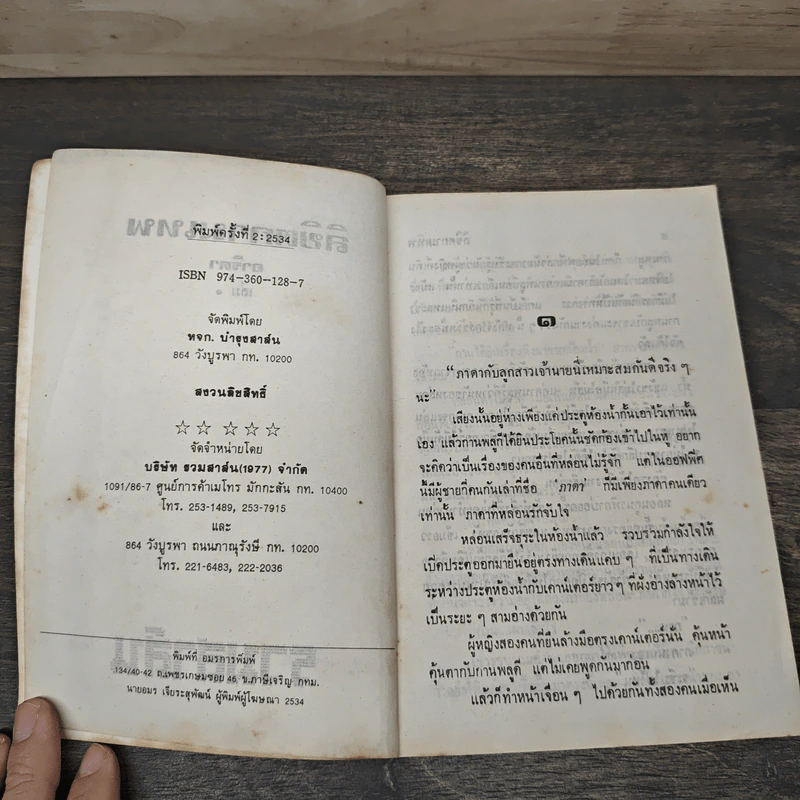 พิมพ์ครั้งที่ 2 : 2534
ISBN 974-360-128-7
จัดพิมพ์โดย
หจก. บำรุงสาส์น
864 วังบูรพา กท. 10200
สงวนลิขสิทธิ์
☆☆ ☆☆☆
จัดจำหน่ายโดย
บริษัท รวมสาส์น(1977) จำกัด
1091/86-7 ศูนย์การค้าเมโทร มักกะสัน กท. 10400
โทร. 253-1489, 253-7915
และ
864 วังบูรพา ถนนภาณุรังษี กท. 10200
โทร. 221-6483, 222-2036
พิมพ์ที่ อมรการพิมพ์
134/40-42 ถ.เพชรเกษมซอย 46 ข.ภาษีเจริญ กทม.
นายอมร เจียระสุพัฒน์ ผู้พิมพ์ผู้โฆษณา 2534
๑
“ ภาดากับลูกสาวเจ้านายนี่เหมาะสมกันดีจริง ๆ
นะ”
เสียงนั้นอยู่ห่างเพียงแค่ประตูห้องน้ำกั้นเอาไว้เท่านั้น
เอง แล้วกานพลูก็ได้ยินประโยคนั้นชัดก้องเข้าไปในหู อยาก
จะคิดว่าเป็นเรื่องของคนอื่นที่หล่อนไม่รู้จัก แต่ในออฟฟิศ
นี้มีผู้ชายกี่คนกันเล่าที่ชื่อ ‘ภาดา’ ก็มีเพียงภาดาคนเดียว
เท่านั้น ภาดาที่หล่อนรักจับใจ
หล่อนเสร็จธุระในห้องน้ำแล้ว รวบรวมกำลังใจให้
เปิดประตูออกมายืนอยู่ตรงทางเดินแคบ ๆ ที่เป็นทางเดิน
ระหว่างประตูห้องน้ำกับเคาน์เตอร์ยาว ๆ ที่ฝังอ่างล้างหน้าไว้
เป็นระยะ ๆ สามอ่างด้วยกัน
ผู้หญิงสองคนที่ยืนล้างมือตรงเคาน์เตอร์นั้น คุ้นหน้า
คุ้นตากับกานพลูดี แต่ไม่เคยพูดกันมาก่อน
แล้วก็ทำหน้าเจื่อน ๆ ไปด้วยกันทั้งสองคนเมื่อเห็น